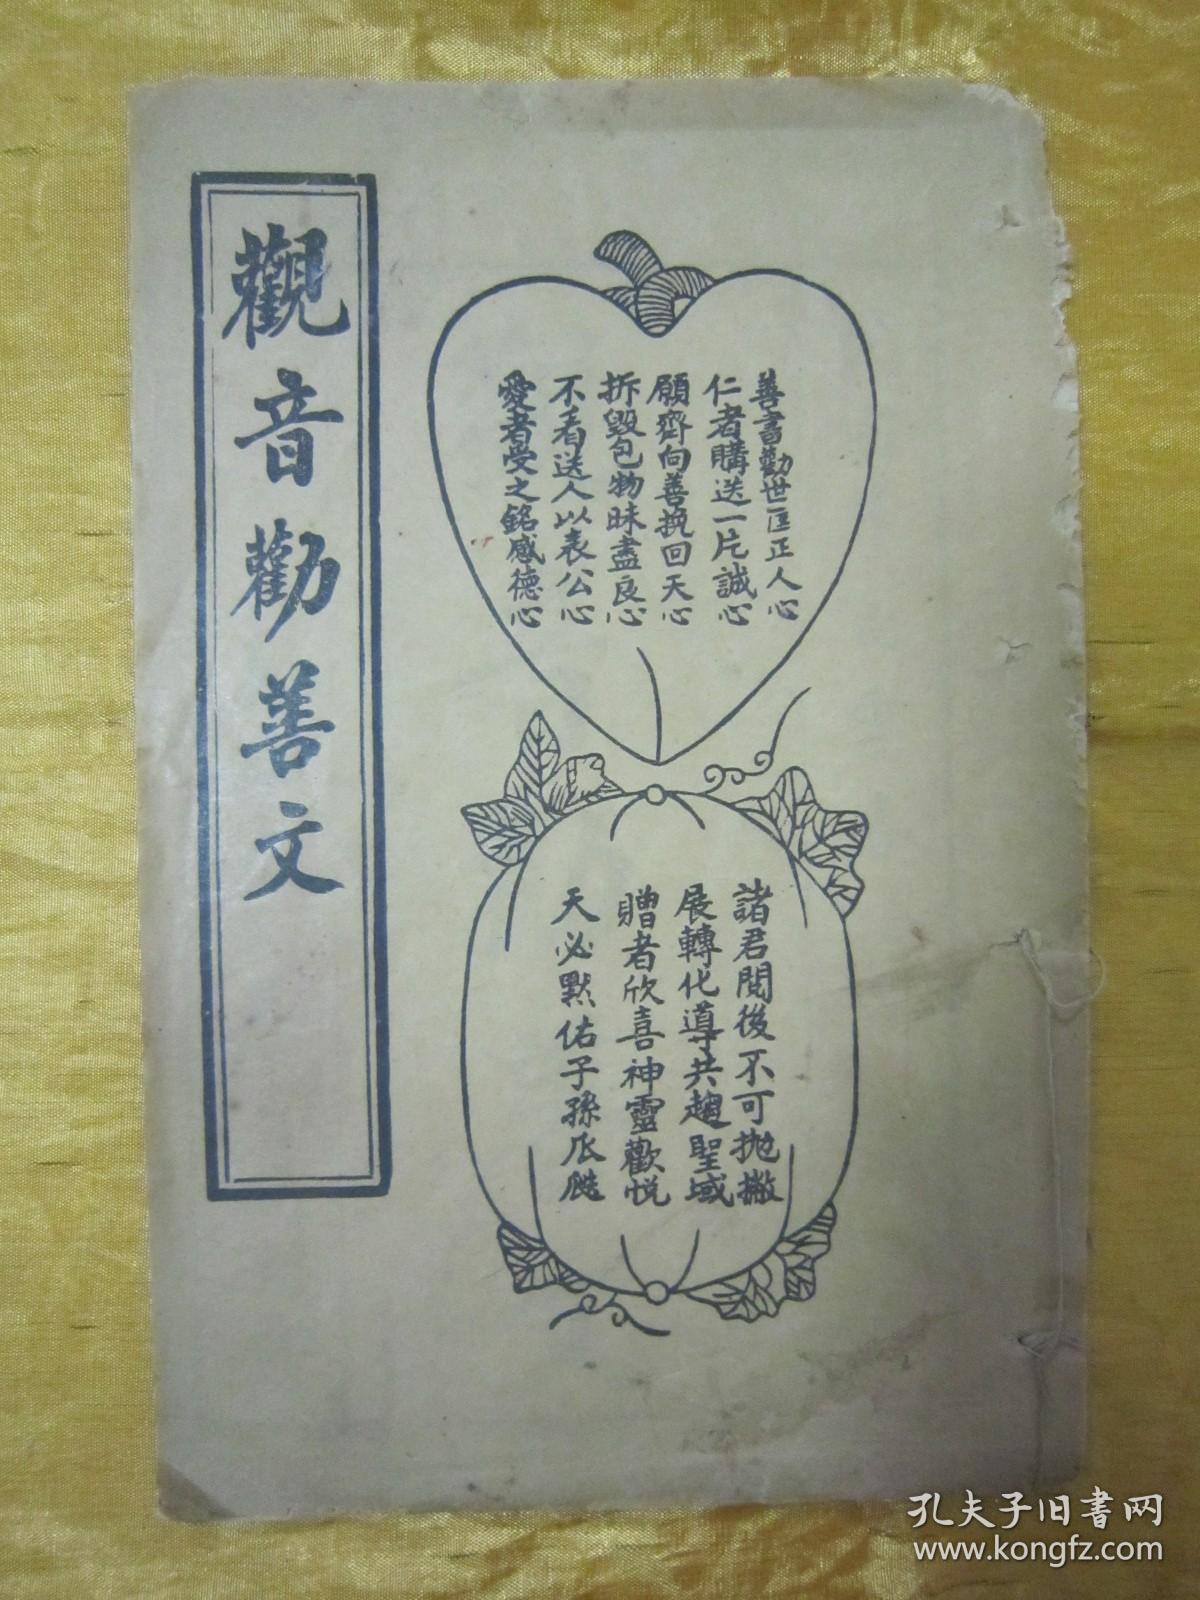 觀音勸善文
善書勸世匡正人心
仁者購送一片誠心
願齊向善挽回天心
拆毀包物昧盡良心
不看送人以表公心
愛者受之銘感德心
諸君閱後不可拋撇
展轉化導共趨聖域
贈者欣喜神靈歡悅
天必默佑子孫瓜瓞
孔夫子旧书网
www.kongfz.com